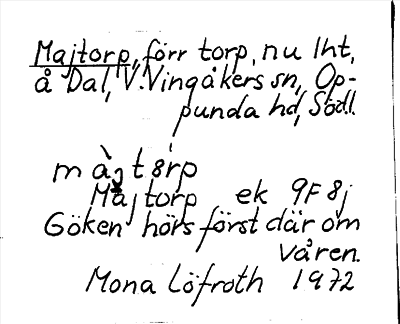 Majtorp, förr torp, nu lht,
å Dal, V. Vingåkers sn, Op-
punda hd, Södl.
màjt8rp
Majtorp ek 9F8j
Göken hörs först där om
våren.
Mona Löfroth 1972